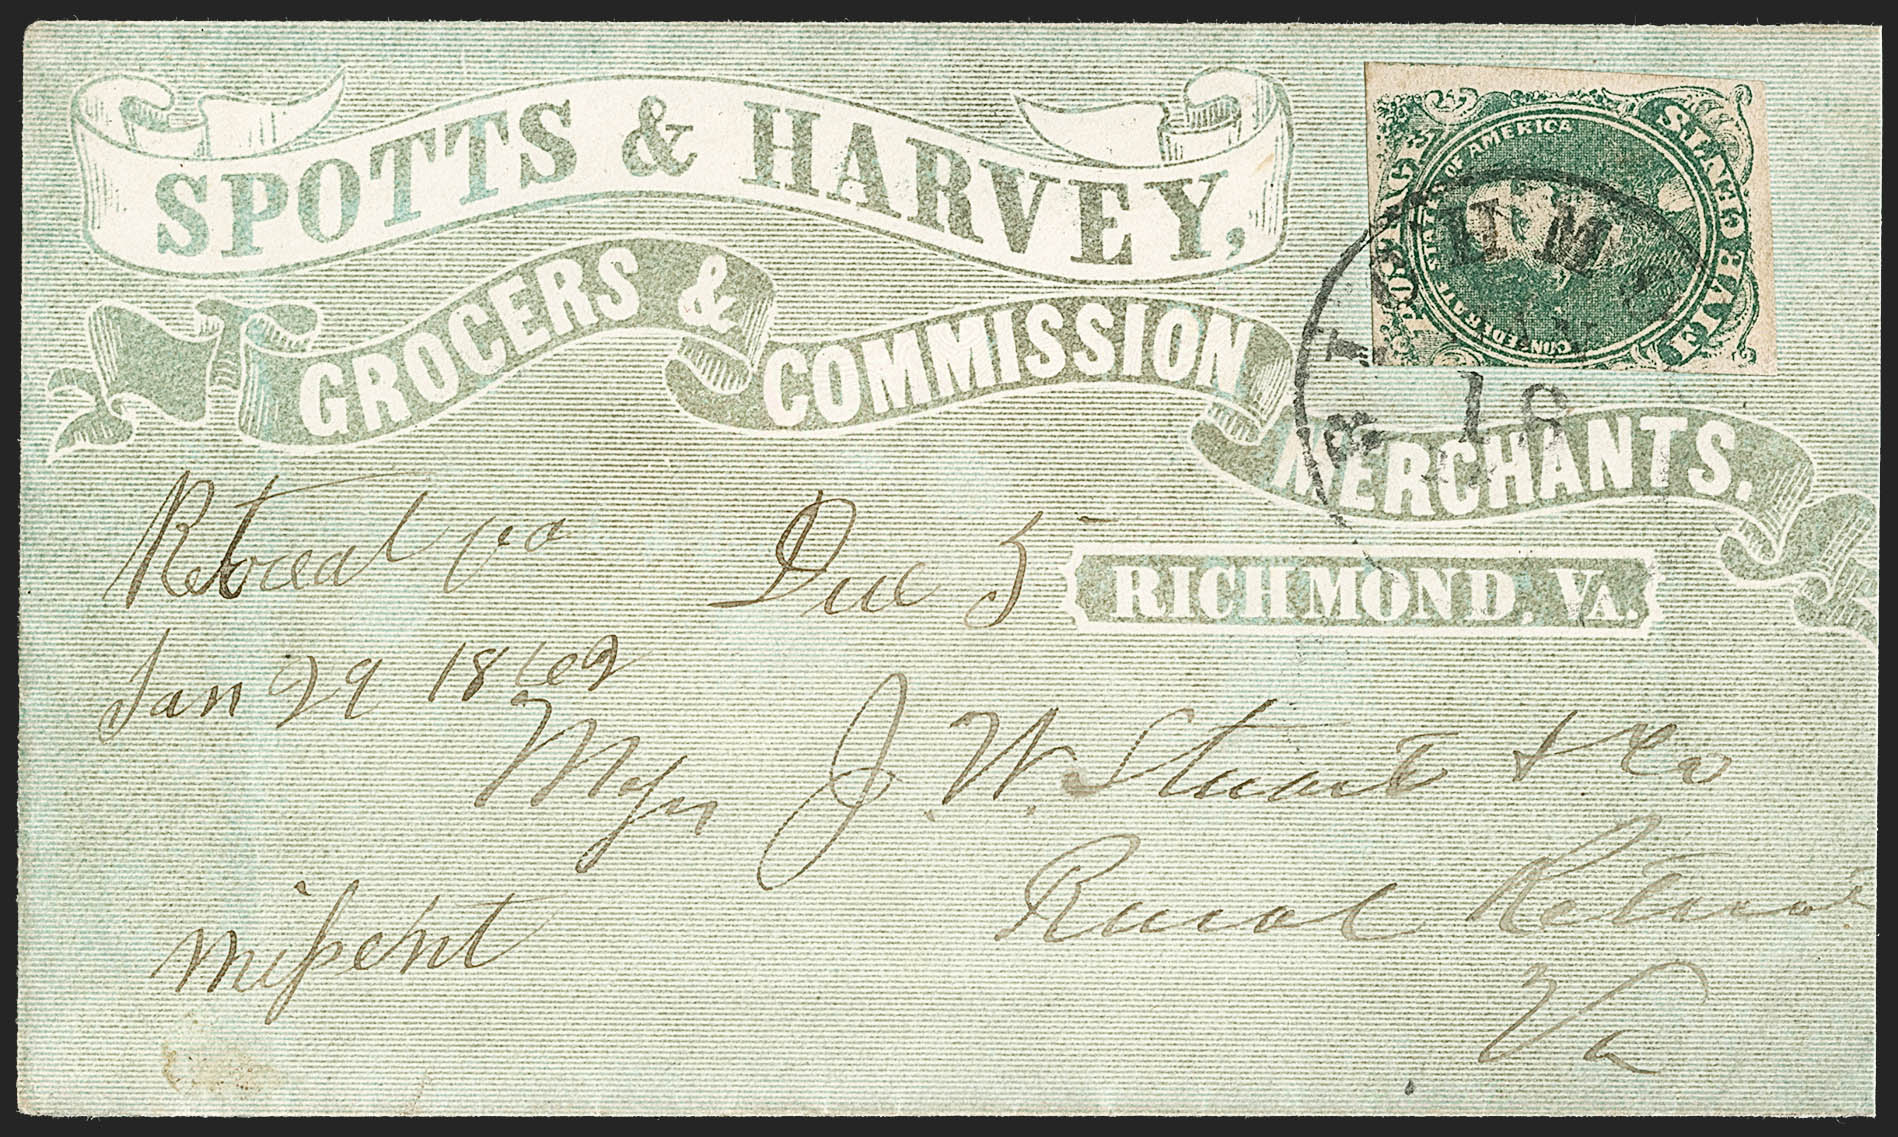 SPOTTS & HARVEY,
GROCERS & COMMISSION MERCHANTS.
RICHMOND, VA.
POSTAGE
CONFEDERATE STATES OF AMERICA
FIVE CENTS
RICHM
18
Retreat Va Due 5
Jan 29 1862
Messrs J. W. Stuart & Co
Rural Retreat
Va
missent